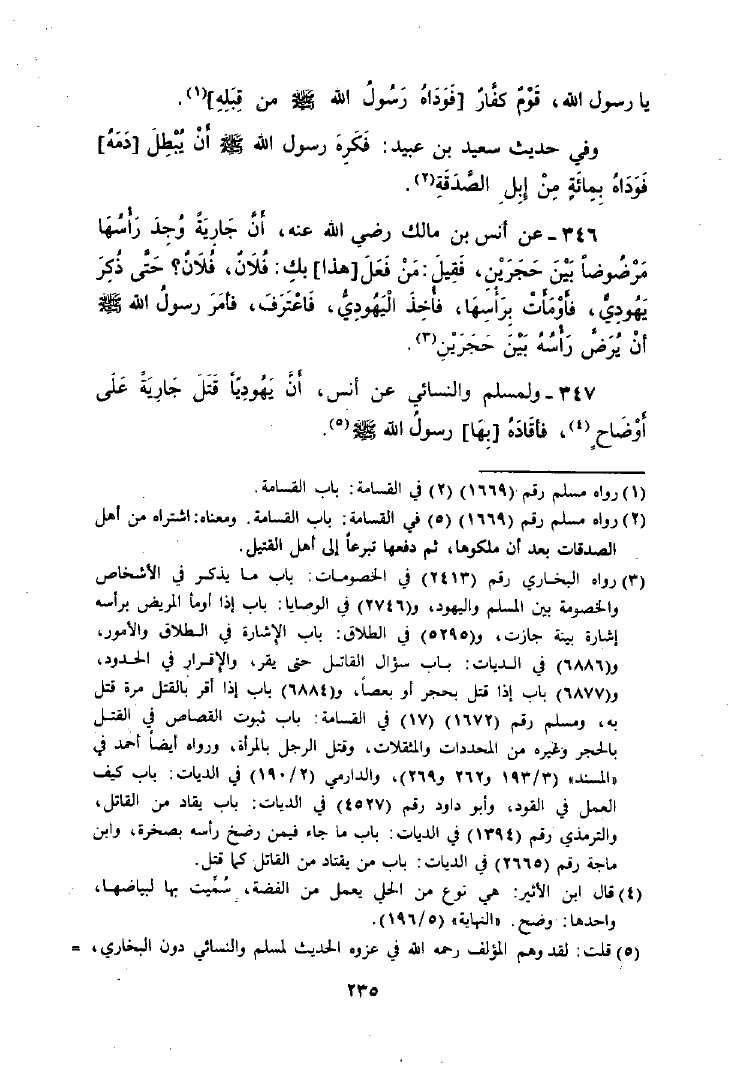 يا رسول الله، قَوْمٌ كفَّارٌ [فَوَدَاهُ رَسُولُ الله ﷺ من قِبَلِهِ](١).
وفي حديث سعيد بن عبيد: فَكَرِهَ رسول الله ﷺ أَنْ يُبْطِلَ [دَمَهُ]
فَوَدَاهُ بِمِائَةٍ مِنْ إِبلِ الصَّدَقَةِ(٢).
٣٤٦ - عن أنس بن مالك رضي الله عنه، أَنَّ جَارِيَةً وُجِدَ رَأْسُهَا
مَرْضُوضاً بَيْنَ حَجَرَيْنِ، فَقِيلَ: مَنْ فَعَلَ [هذا] بكِ: فُلَانٌ، فُلَانٌ؟ حَتَّى ذُكِرَ
يَهُودِيٌّ، فَأَوْمَأَتْ بِرَأْسِهَا، فَأُخِذَ الْيَهُودِيُّ، فَاعْتَرَفَ، فأمَرَ رسولُ الله ﷺ
أنْ يُرَضَّ رَأْسُهُ بَيْنَ حَجَرَيْنِ(٣).
٣٤٧ - ولمسلم والنسائي عن أنس، أَنَّ يَهُودِيّاً قَتَلَ جَارِيَةً عَلَى
أَوْضَاحٍ(٤)، فأقَادَهُ [بِهَا] رسولُ الله ﷺ(٥).
(١) رواه مسلم رقم (١٦٦٩) (٢) في القسامة: باب القسامة.
(٢) رواه مسلم رقم (١٦٦٩) (٥) في القسامة: باب القسامة. ومعناه: اشتراه من أهل
الصدقات بعد أن ملكوها، ثم دفعها تبرعاً إلى أهل القتيل.
(٣) رواه البخاري رقم (٢٤١٣) في الخصومات: باب ما يذكر في الأشخاص
والخصومة بين المسلم واليهود، و(٢٧٤٦) في الوصايا: باب إذا أومأ المريض برأسه
إشارة بينة جازت، و(٥٢٩٥) في الطلاق: باب الإشارة في الطلاق والأمور،
و(٦٨٨٦) في الديات: باب سؤال القاتل حتى يقر، والإقرار في الحدود،
و(٦٨٧٧) باب إذا قتل بحجر أو بعصاً، و(٦٨٨٤) باب إذا أقر بالقتل مرة قتل
به، ومسلم رقم (١٦٧٢) (١٧) في القسامة: باب ثبوت القصاص في القتل
بالحجر وغيره من المحددات والمثقلات، وقتل الرجل بالمرأة، ورواه أيضاً أحمد في
«المسند» (١٩٣/٣ و٢٦٢ و٢٦٩)، والدارمي (١٩٠/٢) في الديات: باب كيف
العمل في القود، وأبو داود رقم (٤٥٢٧) في الديات: باب يقاد من القاتل،
والترمذي رقم (١٣٩٤) في الديات: باب ما جاء فيمن رضخ رأسه بصخرة، وابن
ماجة رقم (٢٦٦٥) في الديات: باب من يقتاد من القاتل كما قتل.
(٤) قال ابن الأثير: هي نوع من الحلي يعمل من الفضة، سُمِّيت بها لبياضها،
واحدها: وضح. «النهاية» (١٩٦/٥).
(٥) قلت: لقد وهم المؤلف رحمه الله في عزوه الحديث لمسلم والنسائي دون البخاري، =
٢٣٥